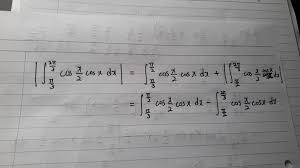 |∫_{π/3}^{2π/3} cos x/2 cos x dx| = ∫_{π/3}^{π/2} cos x/2 cos x dx + |∫_{π/2}^{2π/3} cos x/2 cos x dx|
= ∫_{π/3}^{π/2} cos x/2 cos x dx − ∫_{π/2}^{2π/3} cos x/2 cos x dx